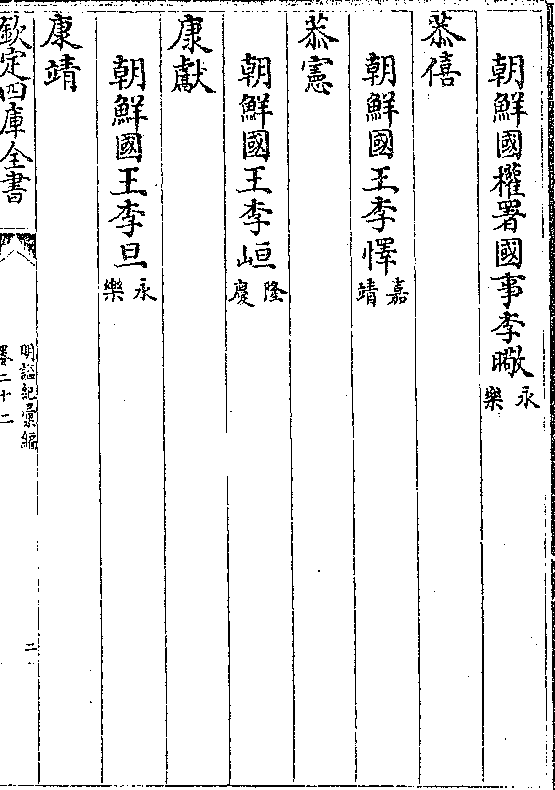 朝鮮國權署國事李曔永樂
恭僖
朝鮮國王李懌嘉靖
恭憲
朝鮮國王李峘隆慶
康獻
朝鮮國王李旦永樂
康靖
欽定四庫全書
明諡紀彙編
卷二十二
二